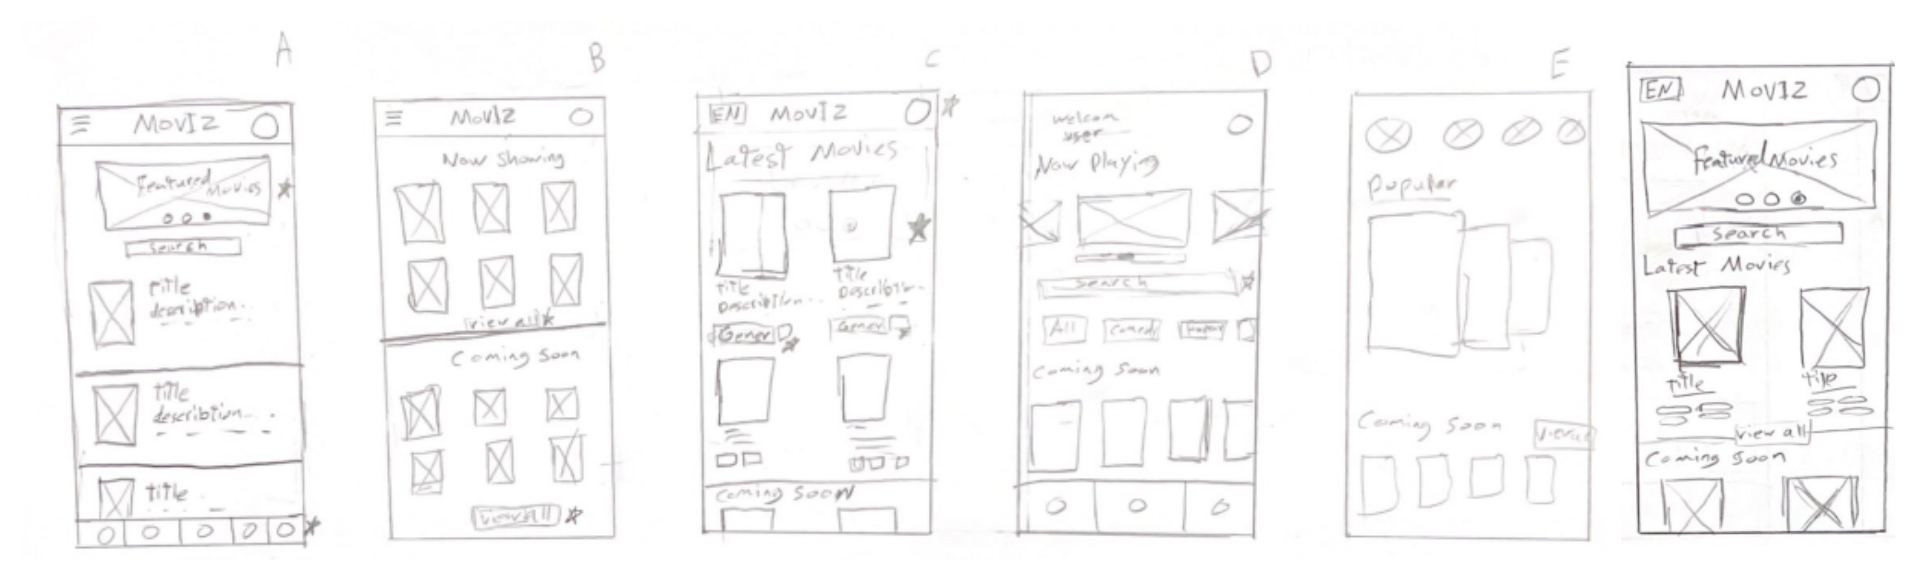 A
MOVIZ
Featured
Movies
Search
title
describtion..
title
describtion...
title
B
MOVIZ
Now Showing
View all
Coming Soon
View all
C
EN MOVIZ
Latest Movies
title
Describtion...
title
Describtion..
Gener
Gener
Coming Soon
D
welcom
user
Now Playing
Search
All
Comedy
Coming Soon
E
Popular
Coming Soon
View all
EN MOVIZ
Featured Movies
Search
Latest Movies
title
title
View all
Coming Soon